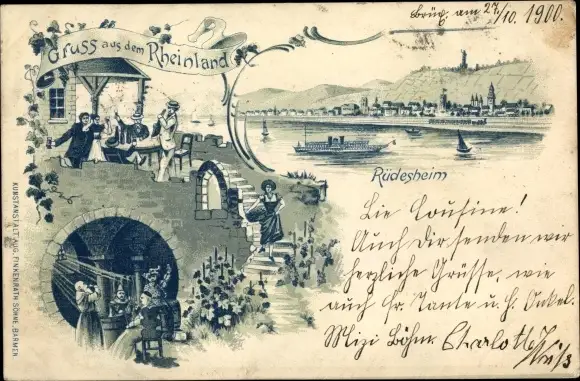 Brüx, am 27/10. 1900.
Gruss aus dem Rheinland
Rüdesheim
Lie Cousine!
Auch Dir senden wir
herzliche Grüsse, wie
auch Fr. Tante u. H. Onkel.
Mizi Böhm Charlotte
KUNSTANSTALT AUG. FINKENRATH SÖHNE, BARMEN